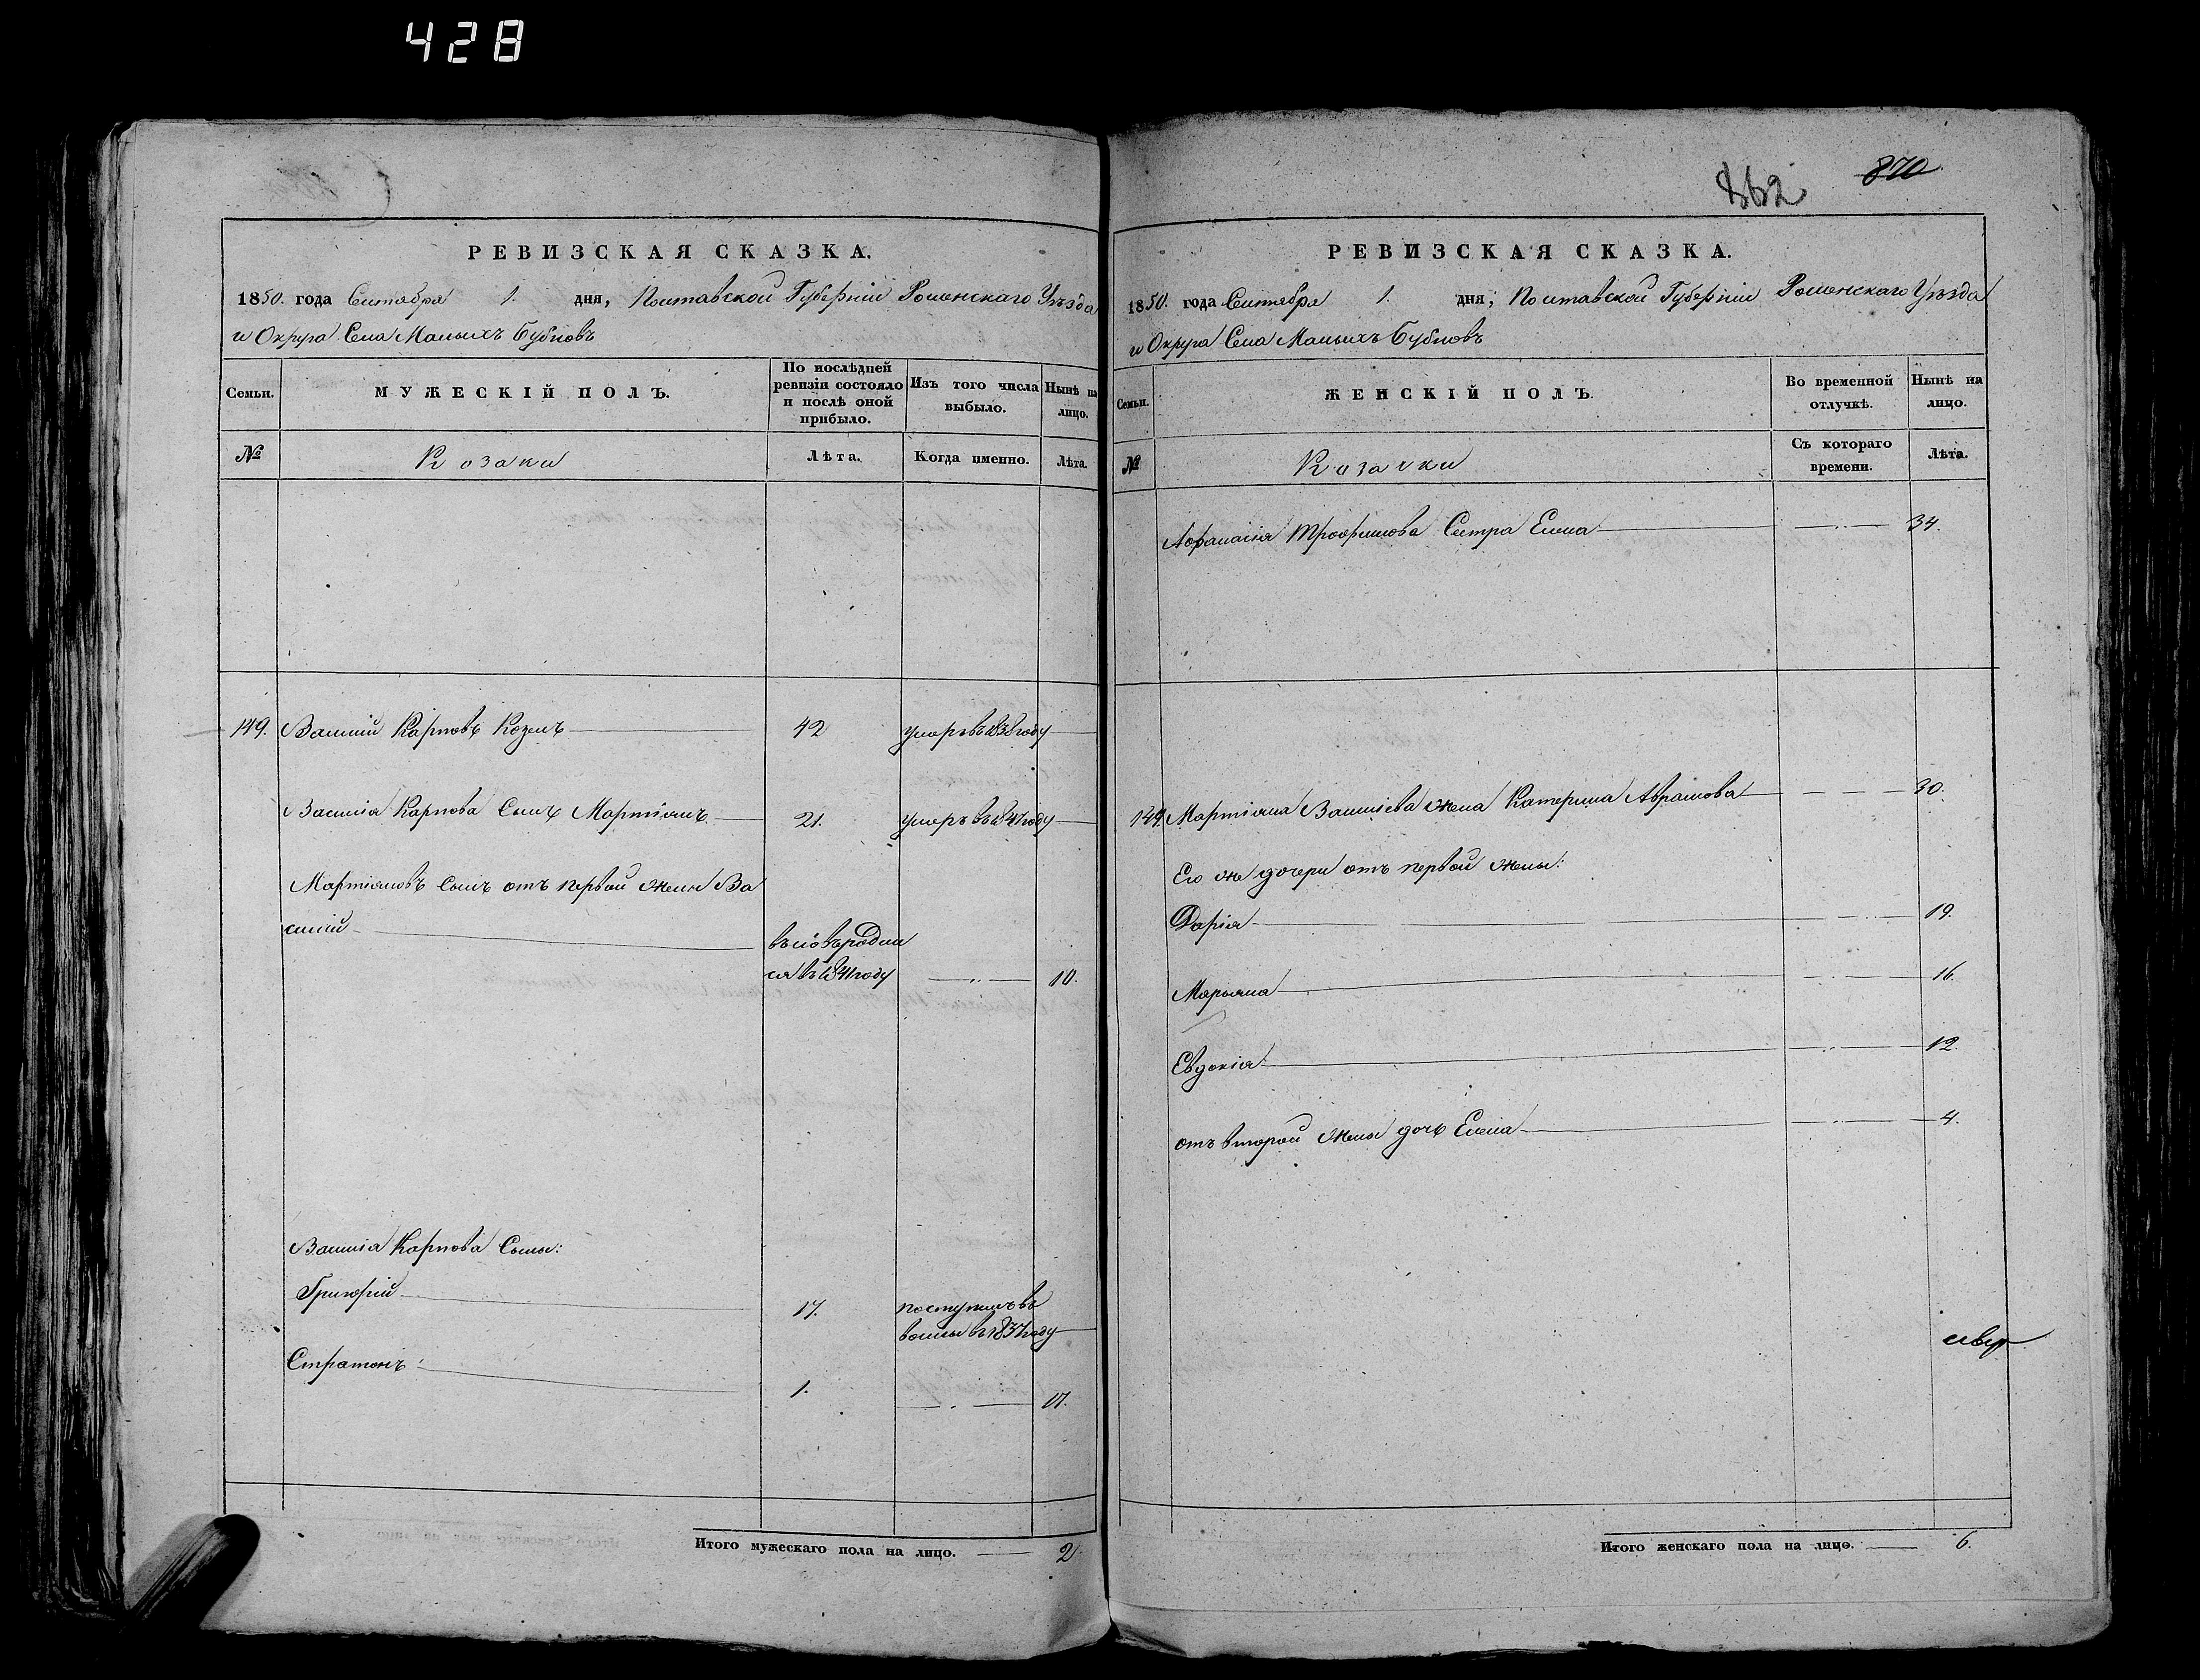 428
РЕВИЗСКАЯ СКАЗКА.
1850. года Сентября 1. дня, Полтавской Губерніи Роменскаго Уѣзда
и Округа Села Малыхъ Бубновъ
Семьи.
МУЖЕСКІЙ ПОЛЪ.
По послѣдней
ревизіи состояло
и послѣ оной
прибыло.
Изъ того числа
выбыло.
Нынѣ на
лицо.
№
Козаки
Лѣта.
Когда именно.
Лѣта.
149. Василій Карповъ Козелъ 42 умеръ въ 1838 году
Василія Карпова Сынъ Мартіянъ 21. умеръ въ 1847 году
Мартіяновъ Сынъ отъ первой жены Ва
силій
вновь родил
ся въ 1841 году 10.
Василія Карпова Сыны:
Григорій 17. поступилъ въ
воины въ 1837 году
Стратонъ: 1. 17.
Итого мужескаго пола на лицо. 2.
862 870
РЕВИЗСКАЯ СКАЗКА.
1850. года Сентября 1. дня, Полтавской Губерніи Роменскаго Уѣзда
и Округа Села Малыхъ Бубновъ
Семьи.
ЖЕНСКІЙ ПОЛЪ.
Во временной
отлучкѣ.
Нынѣ на
лицо.
№
Козачки
Съ котораго
времени.
Лѣта.
Афанасія Трофимова Сестра Елена 34.
149. Мартіяна Василіева жена Катерина Абрамова 30.
Его же дочери отъ первой жены:
Дарія 19.
Марьяна 16.
Евдокія 12.
отъ второй жены дочь Елена 4.
Итого женскаго пола на лицо. 6.